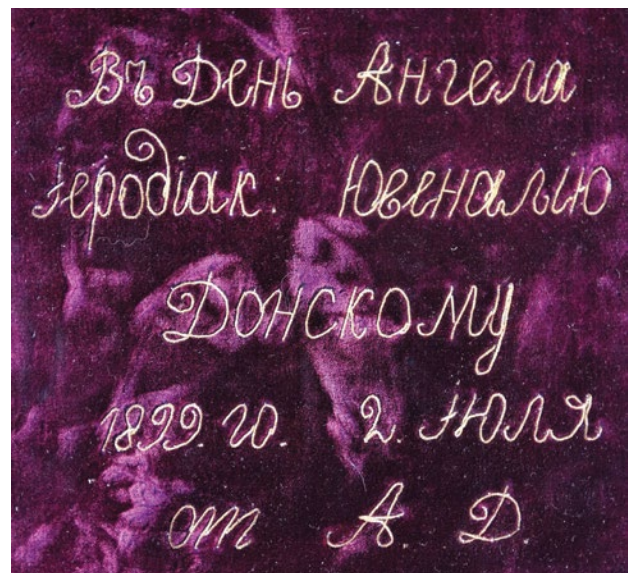 Въ День Ангела
Іеродіак. Ювеналію
Донскому
1899. го. 2. Июля
от А. Д.